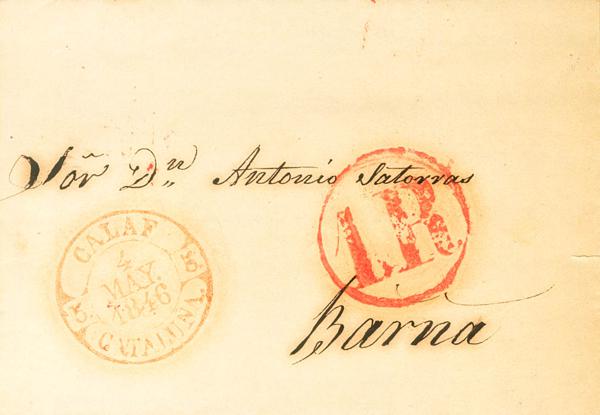 Sõr Dn Antonio Satorras
1R
CALAF
4
MAY.
1846
CATALUÑA
Barña